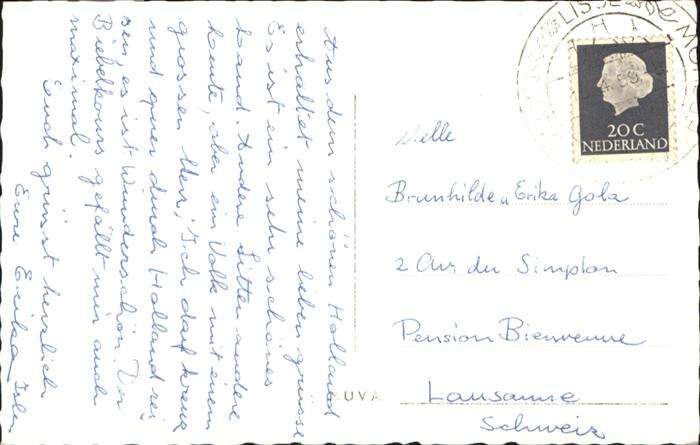 Aus dem schönen Holland
erhaltet meine lieben grüsse
Es ist ein sehr schönes
Land. Andere Sitten andere
Leute, aber ein Volk mit einem
grossen Herz. Ich darf kreuz
und quer durch Holland rei
sen, es ist wunderschön. Der
Bibelkurs gefällt mir auch
maximal.
Euch grüsst herzlich
Eure Erika
20 C
NEDERLAND
LISSE
Brunhilde u Erika Gola
2 Av. du Simplon
Pension Bienvenue
Lausanne
Schweiz
UVA